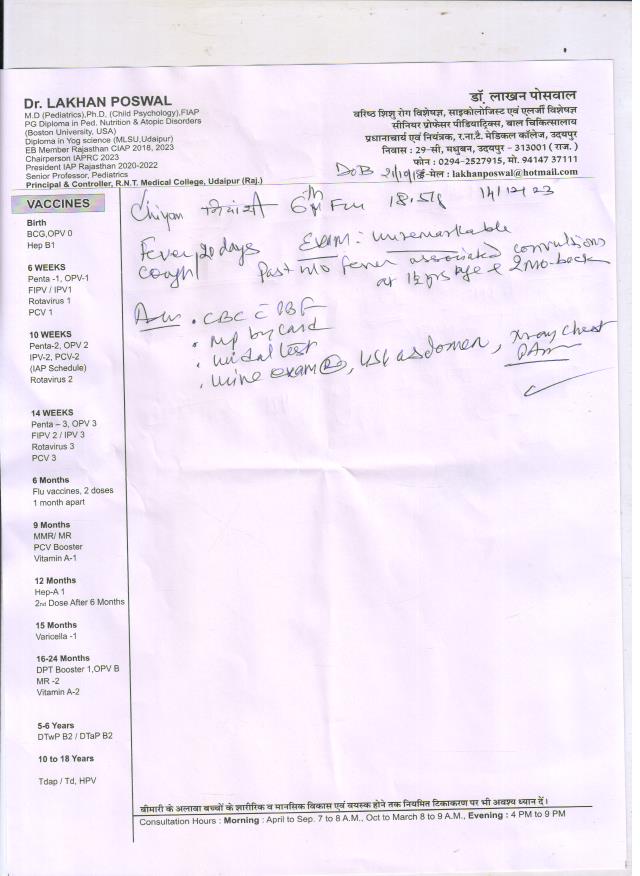 Dr. LAKHAN POSWAL
M.D (Pediatrics),Ph.D, (Child Psychology),FIAP
PG Diploma in Ped. Nutrition & Atopic Disorders
(Boston University, USA)
Diploma in Yog science (MLSU,Udaipur)
EB Member Rajasthan CIAP 2018, 2023
Chairperson IAPRC 2023
President IAP Rajasthan 2020-2022
Senior Professor, Pediatrics
Principal & Controller, R.N.T. Medical College, Udaipur (Raj.)
डॉ. लाखन पोसवाल
वरिष्ठ शिशु रोग विशेषज्ञ, साइकोलोजिस्ट एवं एलर्जी विशेषज्ञ
सीनियर प्रोफेसर पीडियाट्रिक्स, बाल चिकित्सालय
प्रधानाचार्य एवं नियंत्रक, र.ना.टै. मेडिकल कॉलेज, उदयपुर
निवास : 29-सी, मधुबन, उदयपुर - 313001 ( राज. )
फोन : 0294-2527915, मो. 94147 37111
DOB ई-मेल : lakhanposwal@hotmail.com
14/12/23
Fever 20 days Exam: unremarkable
cough Past no fever associated convulsions
at 1½ yrs age & 2 mo back
. CBC c PBF
. MP by card
. widal test
. urine exam, USG abdomen, Xray chest
PA
VACCINES
Birth
BCG,OPV 0
Hep B1
6 WEEKS
Penta -1, OPV-1
FIPV / IPV1
Rotavirus 1
PCV 1
10 WEEKS
Penta-2, OPV 2
IPV-2, PCV-2
(IAP Schedule)
Rotavirus 2
14 WEEKS
Penta – 3, OPV 3
FIPV 2 / IPV 3
Rotavirus 3
PCV 3
6 Months
Flu vaccines, 2 doses
1 month apart
9 Months
MMR/ MR
PCV Booster
Vitamin A-1
12 Months
Hep-A 1
2nd Dose After 6 Months
15 Months
Varicella -1
16-24 Months
DPT Booster 1,OPV B
MR -2
Vitamin A-2
5-6 Years
DTwP B2 / DTaP B2
10 to 18 Years
Tdap / Td, HPV
बीमारी के अलावा बच्चों के शारीरिक व मानसिक विकास एवं वयस्क होने तक नियमित टिकाकरण पर भी अवश्य ध्यान दें।
Consultation Hours : Morning : April to Sep. 7 to 8 A.M., Oct to March 8 to 9 A.M., Evening : 4 PM to 9 PM